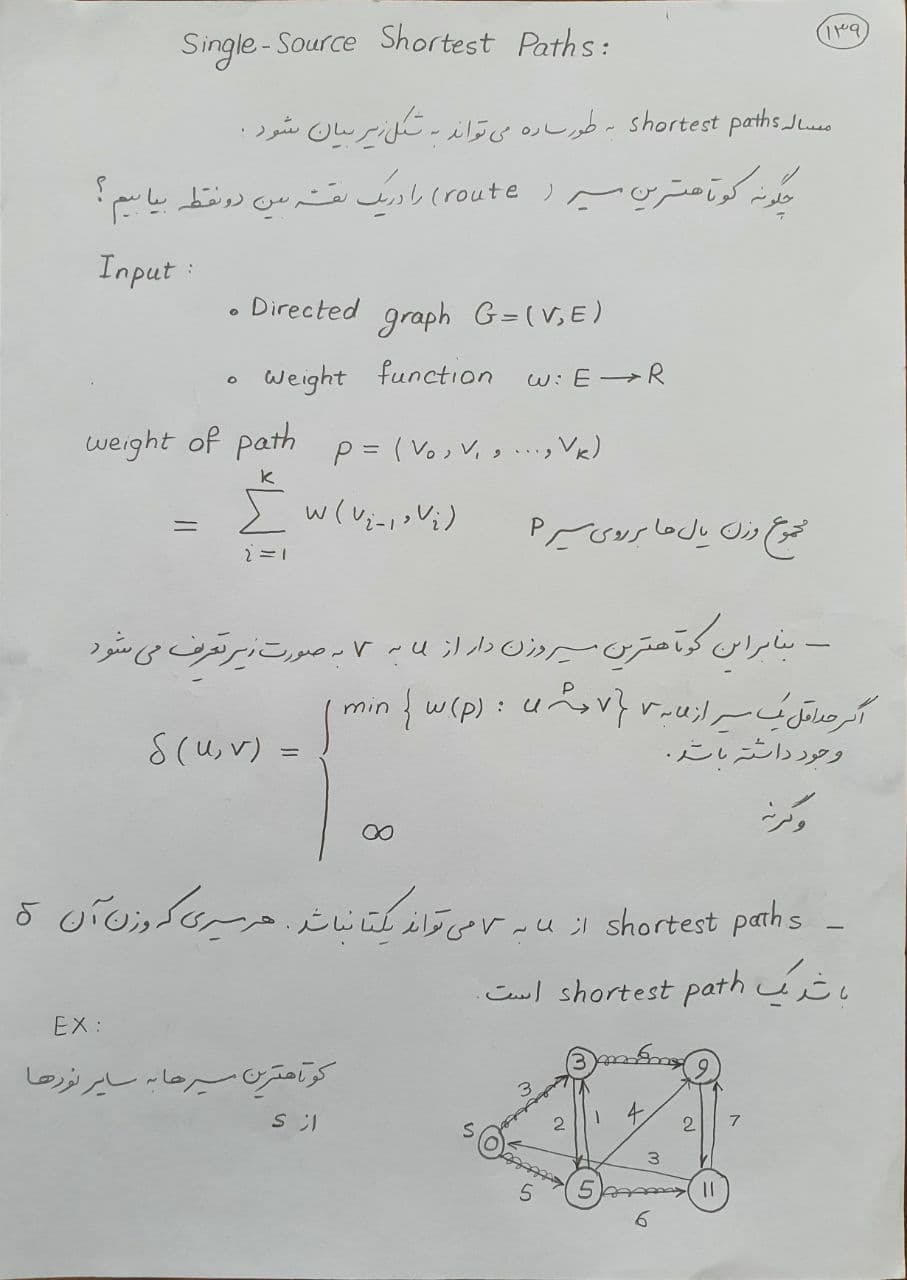 ۱۳۹
Single-Source Shortest Paths:
مساله shortest paths به طور ساده می‌تواند به شکل زیر بیان شود.
چگونه کوتاهترین مسیر (route) را در یک نقشه بین دو نقطه بیابیم؟
Input:
• Directed graph G=(V,E)
• Weight function w: E → R
weight of path p = (v₀, v₁, ..., vₖ)
= ∑ᵢ₌₁ᵏ w(vᵢ₋₁, vᵢ) مجموع وزن یال‌ها بر روی مسیر P
– بنابراین کوتاهترین مسیر وزن دار از u به v به صورت زیر تعریف می‌شود
δ(u,v) = { min { w(p) : u ⤳ᵖ v } اگر حداقل یک مسیر از u به v
وجود داشته باشد.
∞ وگرنه
– shortest paths از u به v می‌تواند یکتا نباشد. هر مسیری که وزن آن δ
باشد یک shortest path است.
EX:
کوتاهترین مسیرها به سایر نودها
از s
3 6 9
3 2 1 4 2 7
s 0 3
5 5 6 11